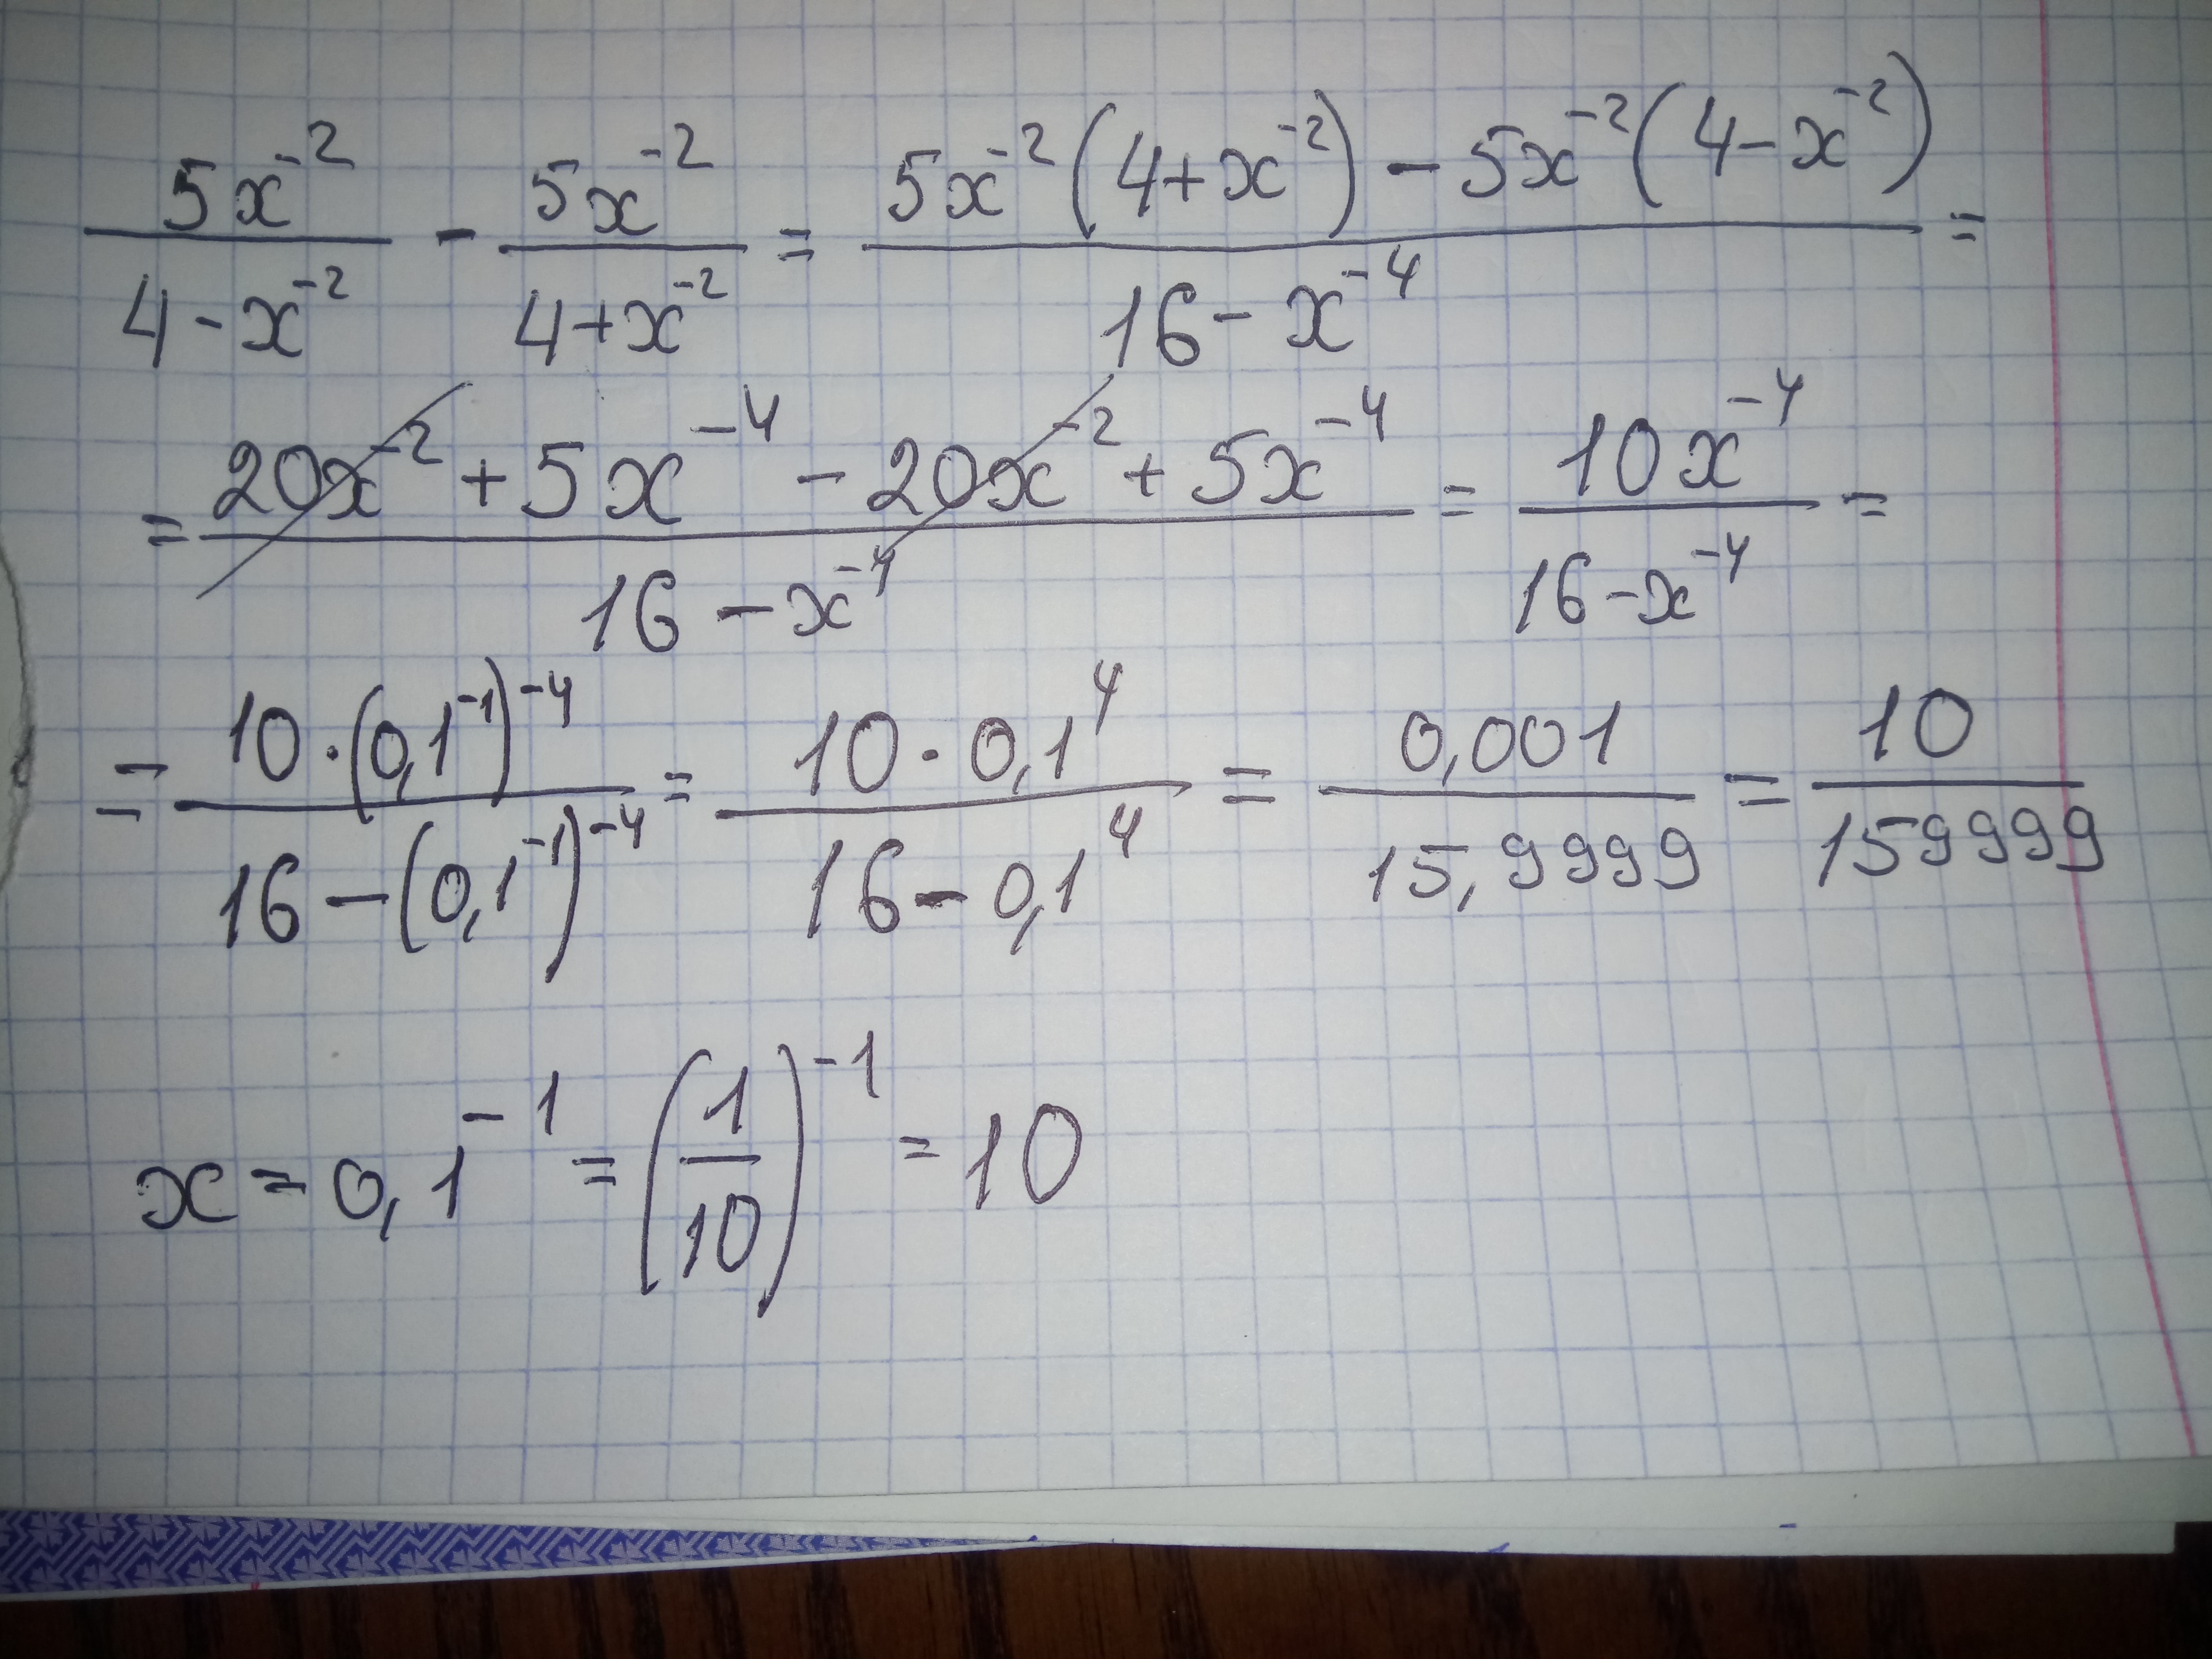 5x⁻²/(4-x⁻²) - 5x⁻²/(4+x⁻²) = (5x⁻²(4+x⁻²) - 5x⁻²(4-x⁻²))/(16-x⁻⁴) =
= (20x⁻² + 5x⁻⁴ - 20x⁻² + 5x⁻⁴)/(16-x⁻⁴) = 10x⁻⁴/(16-x⁻⁴) =
= (10·(0,1⁻¹)⁻⁴)/(16-(0,1⁻¹)⁻⁴) = (10·0,1⁴)/(16-0,1⁴) = 0,001/15,9999 = 10/159999
x = 0,1⁻¹ = (1/10)⁻¹ = 10